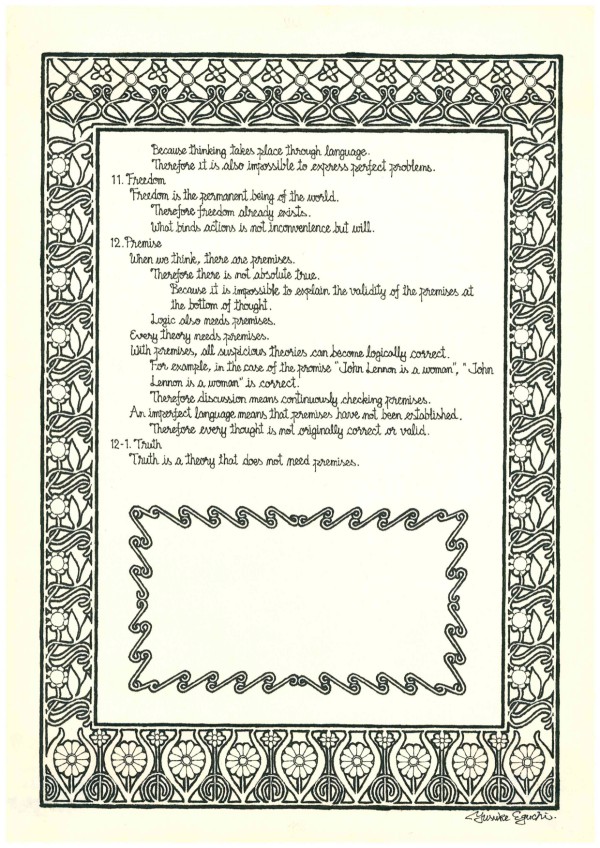 Because thinking takes place through language.
Therefore it is also impossible to express perfect problems.
11. Freedom
Freedom is the permanent being of the world.
Therefore freedom already exists.
What binds actions is not inconvenience but will.
12. Premise
When we think, there are premises.
Therefore there is not absolute true.
Because it is impossible to explain the validity of the premises at
the bottom of thought.
Logic also needs premises.
Every theory needs premises.
With premises, all suspicious theories can become logically correct.
For example, in the case of the promise "John Lennon is a woman", "John
Lennon is a woman" is correct.
Therefore discussion means continuously checking premises.
An imperfect language means that premises have not been established.
Therefore every thought is not originally correct or valid.
12-1. Truth
Truth is a theory that does not need premises.
Yusuke Eguchi.